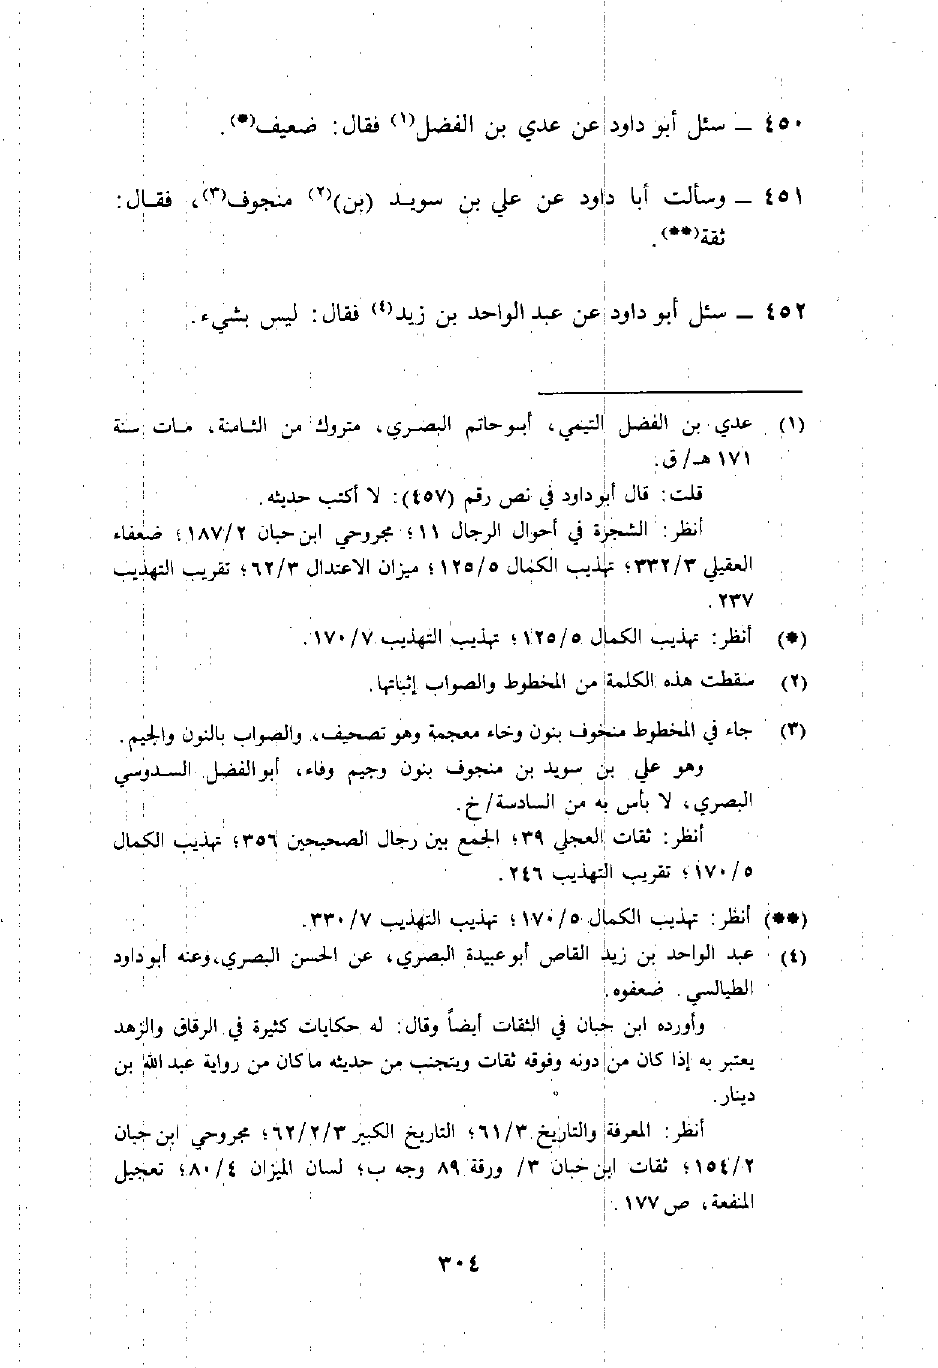 ٤٥٠ ــ سئل أبو داود عن عدي بن الفضل(١) فقال: ضعيف(*).
٤٥١ ــ وسألت أبا داود عن علي بن سويـد (بن)(٢) منجوف(٣)، فقـال:
ثقة(**).
٤٥٢ ــ سئل أبو داود عن عبد الواحد بن زيد(٤) فقال: ليس بشيء.
(١) عدي بن الفضل التيمي، أبـو حاتم البصـري، متروك من الثـامنة، مـات سنة
١٧١ هـ/ ق.
قلت: قال أبو داود في نص رقم (٤٥٧): لا أكتب حديثه.
أنظر: الشجرة في أحوال الرجال ١١؛ مجروحي ابن حبان ١٨٧/٢؛ ضعفاء
العقيلي ٣٣٢/٣؛ تهذيب الكمال ١٢٥/٥؛ ميزان الاعتدال ٦٢/٣؛ تقريب التهذيب
٢٣٧.
(*) أنظر: تهذيب الكمال ١٢٥/٥؛ تهذيب التهذيب ١٧٠/٧.
(٢) سقطت هذه الكلمة من المخطوط والصواب إثباتها.
(٣) جاء في المخطوط منخوف بنون وخاء معجمة وهو تصحيف، والصواب بالنون والجيم.
وهو علي بن سويد بن منجوف بنون وجيم وفاء، أبو الفضل السـدوسي
البصري، لا بأس به من السادسة/ خ.
أنظر: ثقات العجلي ٣٩؛ الجمع بين رجال الصحيحين ٣٥٦؛ تهذيب الكمال
١٧٠/٥؛ تقريب التهذيب ٢٤٦.
(**) أنظر: تهذيب الكمال ١٧٠/٥؛ تهذيب التهذيب ٣٣٠/٧.
(٤) عبد الواحد بن زيد القاص أبو عبيدة البصري، عن الحسن البصري، وعنه أبو داود
الطيالسي. ضعفوه.
وأورده ابن حبان في الثقات أيضاً وقال: له حكايات كثيرة في الرقاق والزهد
يعتبر به إذا كان من دونه وفوقه ثقات ويتجنب من حديثه ما كان من رواية عبد الله بن
دينار.
أنظر: المعرفة والتاريخ ٦١/٣؛ التاريخ الكبير ٦٢/٢/٣؛ مجروحي ابن حبان
١٥٤/٢؛ ثقات ابن حبان ٣/ ورقة ٨٩ وجه ب؛ لسان الميزان ٨٠/٤؛ تعجيل
المنفعة، ص ١٧٧.
٣٠٤